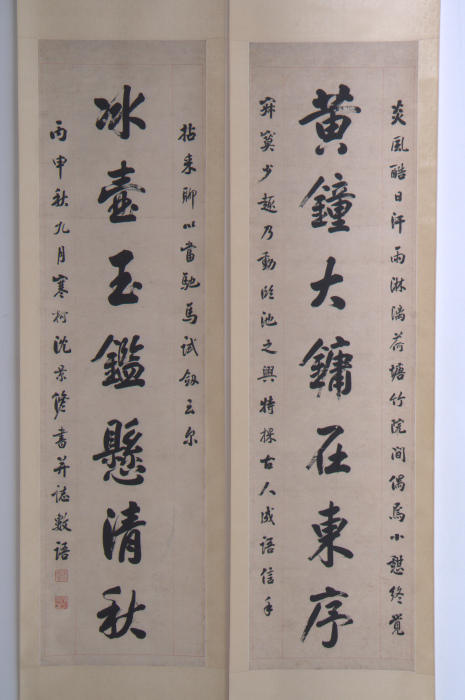 炎風酷日汗雨淋漓荷塘竹院間偶爲小憩終覺
黃鐘大鏞在東序
寂寞少趣乃動臨池之興特探古人成語信手
拈來聊以當馳馬試劔云尔
冰壺玉鑑懸清秋
丙申秋九月寒柯沈景修書并誌數語